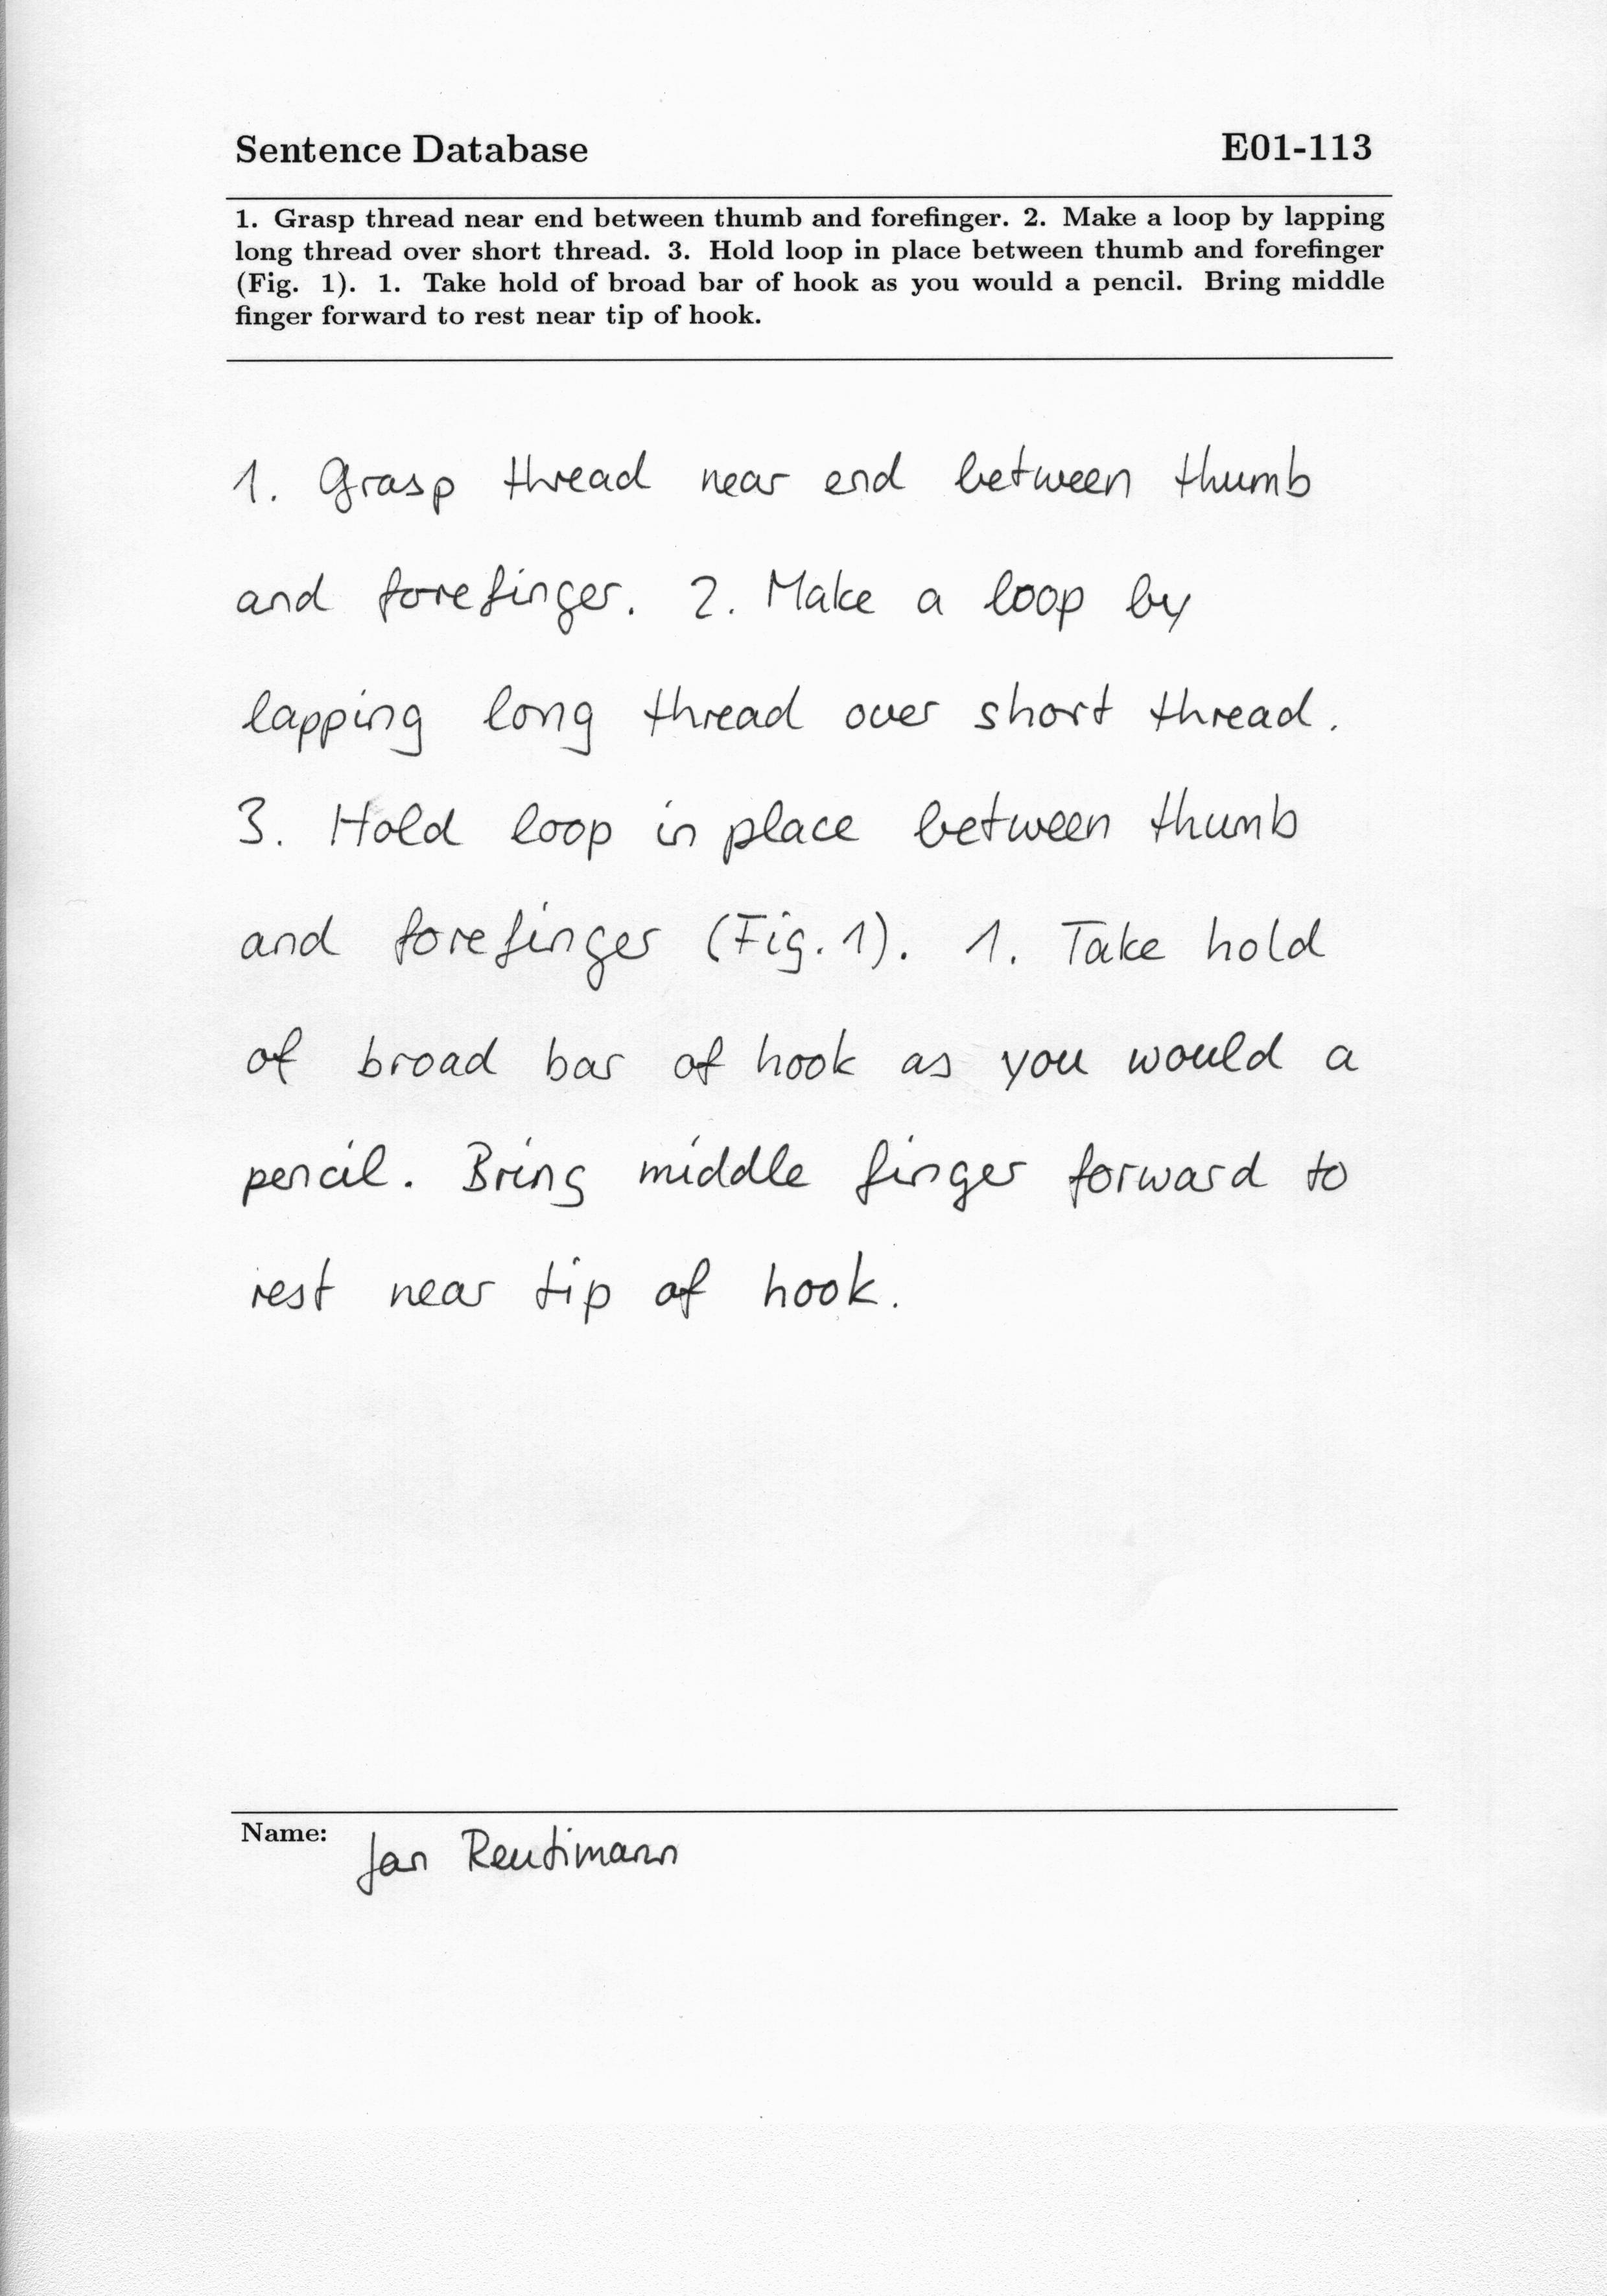 Sentence Database E01-113
1. Grasp thread near end between thumb and forefinger. 2. Make a loop by lapping
long thread over short thread. 3. Hold loop in place between thumb and forefinger
(Fig. 1). 1. Take hold of broad bar of hook as you would a pencil. Bring middle
finger forward to rest near tip of hook.
1. Grasp thread near end between thumb
and forefinger. 2. Make a loop by
lapping long thread over short thread.
3. Hold loop in place between thumb
and forefinger (Fig. 1). 1. Take hold
of broad bar of hook as you would a
pencil. Bring middle finger forward to
rest near tip of hook.
Name: Jan Reutimann